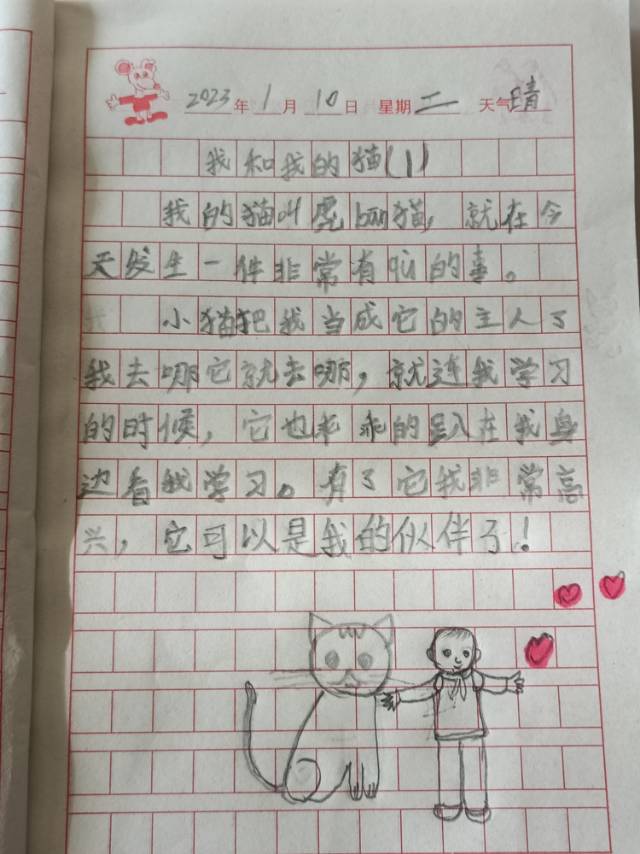 2023年1月10日 星期二 天气晴
我和我的猫(1)
我的猫叫虎ban猫，就在今
天发生一件非常有qu的事。
小猫把我当成它的主人了
我去哪它就去哪，就连我学习
的时候，它也乖乖的趴在我身
边看我学习。有了它我非常高
兴，它可以是我的伙伴了！